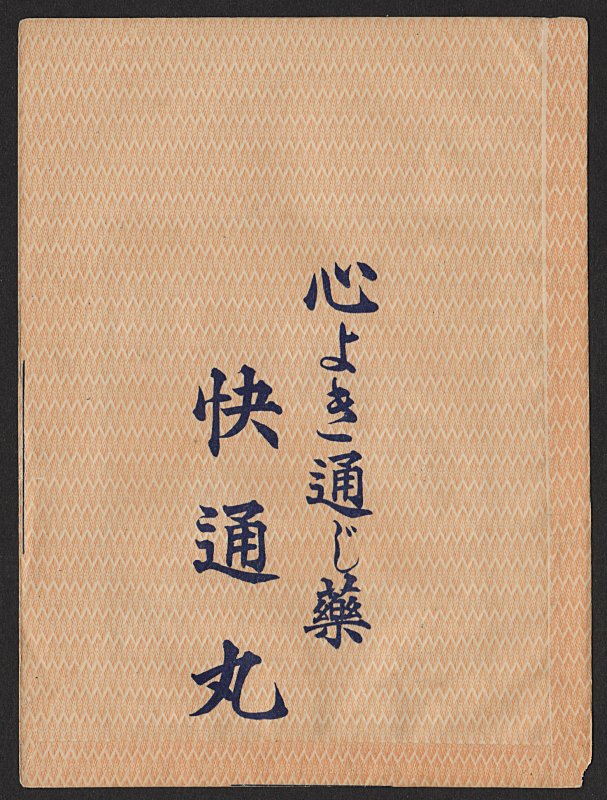 心よき通じ藥
快通丸